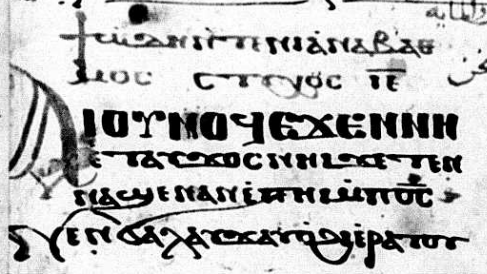 ϯⲱⲇⲏ ⲛⲧⲉ ⲛⲓⲁⲛⲁⲃⲁⲑ
ⲙⲟⲥ ⲥⲧⲩⲭⲟⲥ ⲓ̅ⲉ̅
ⲁⲓⲟⲩⲛⲟϥ ⲉϫⲉⲛ ⲛⲏ
ⲉⲧⲁⲩϫⲟⲥ ⲛⲏⲓ ϫⲉ ⲧⲉⲛ
ⲛⲁϣⲉⲛⲁⲛ ⲉⲡⲏⲓ ⲙⲡϭ̅ⲥ̅
ⲛⲉⲛϭⲁⲗⲁⲩϫ ⲁⲩⲟϩⲓ ⲉⲣⲁⲧⲟⲩ